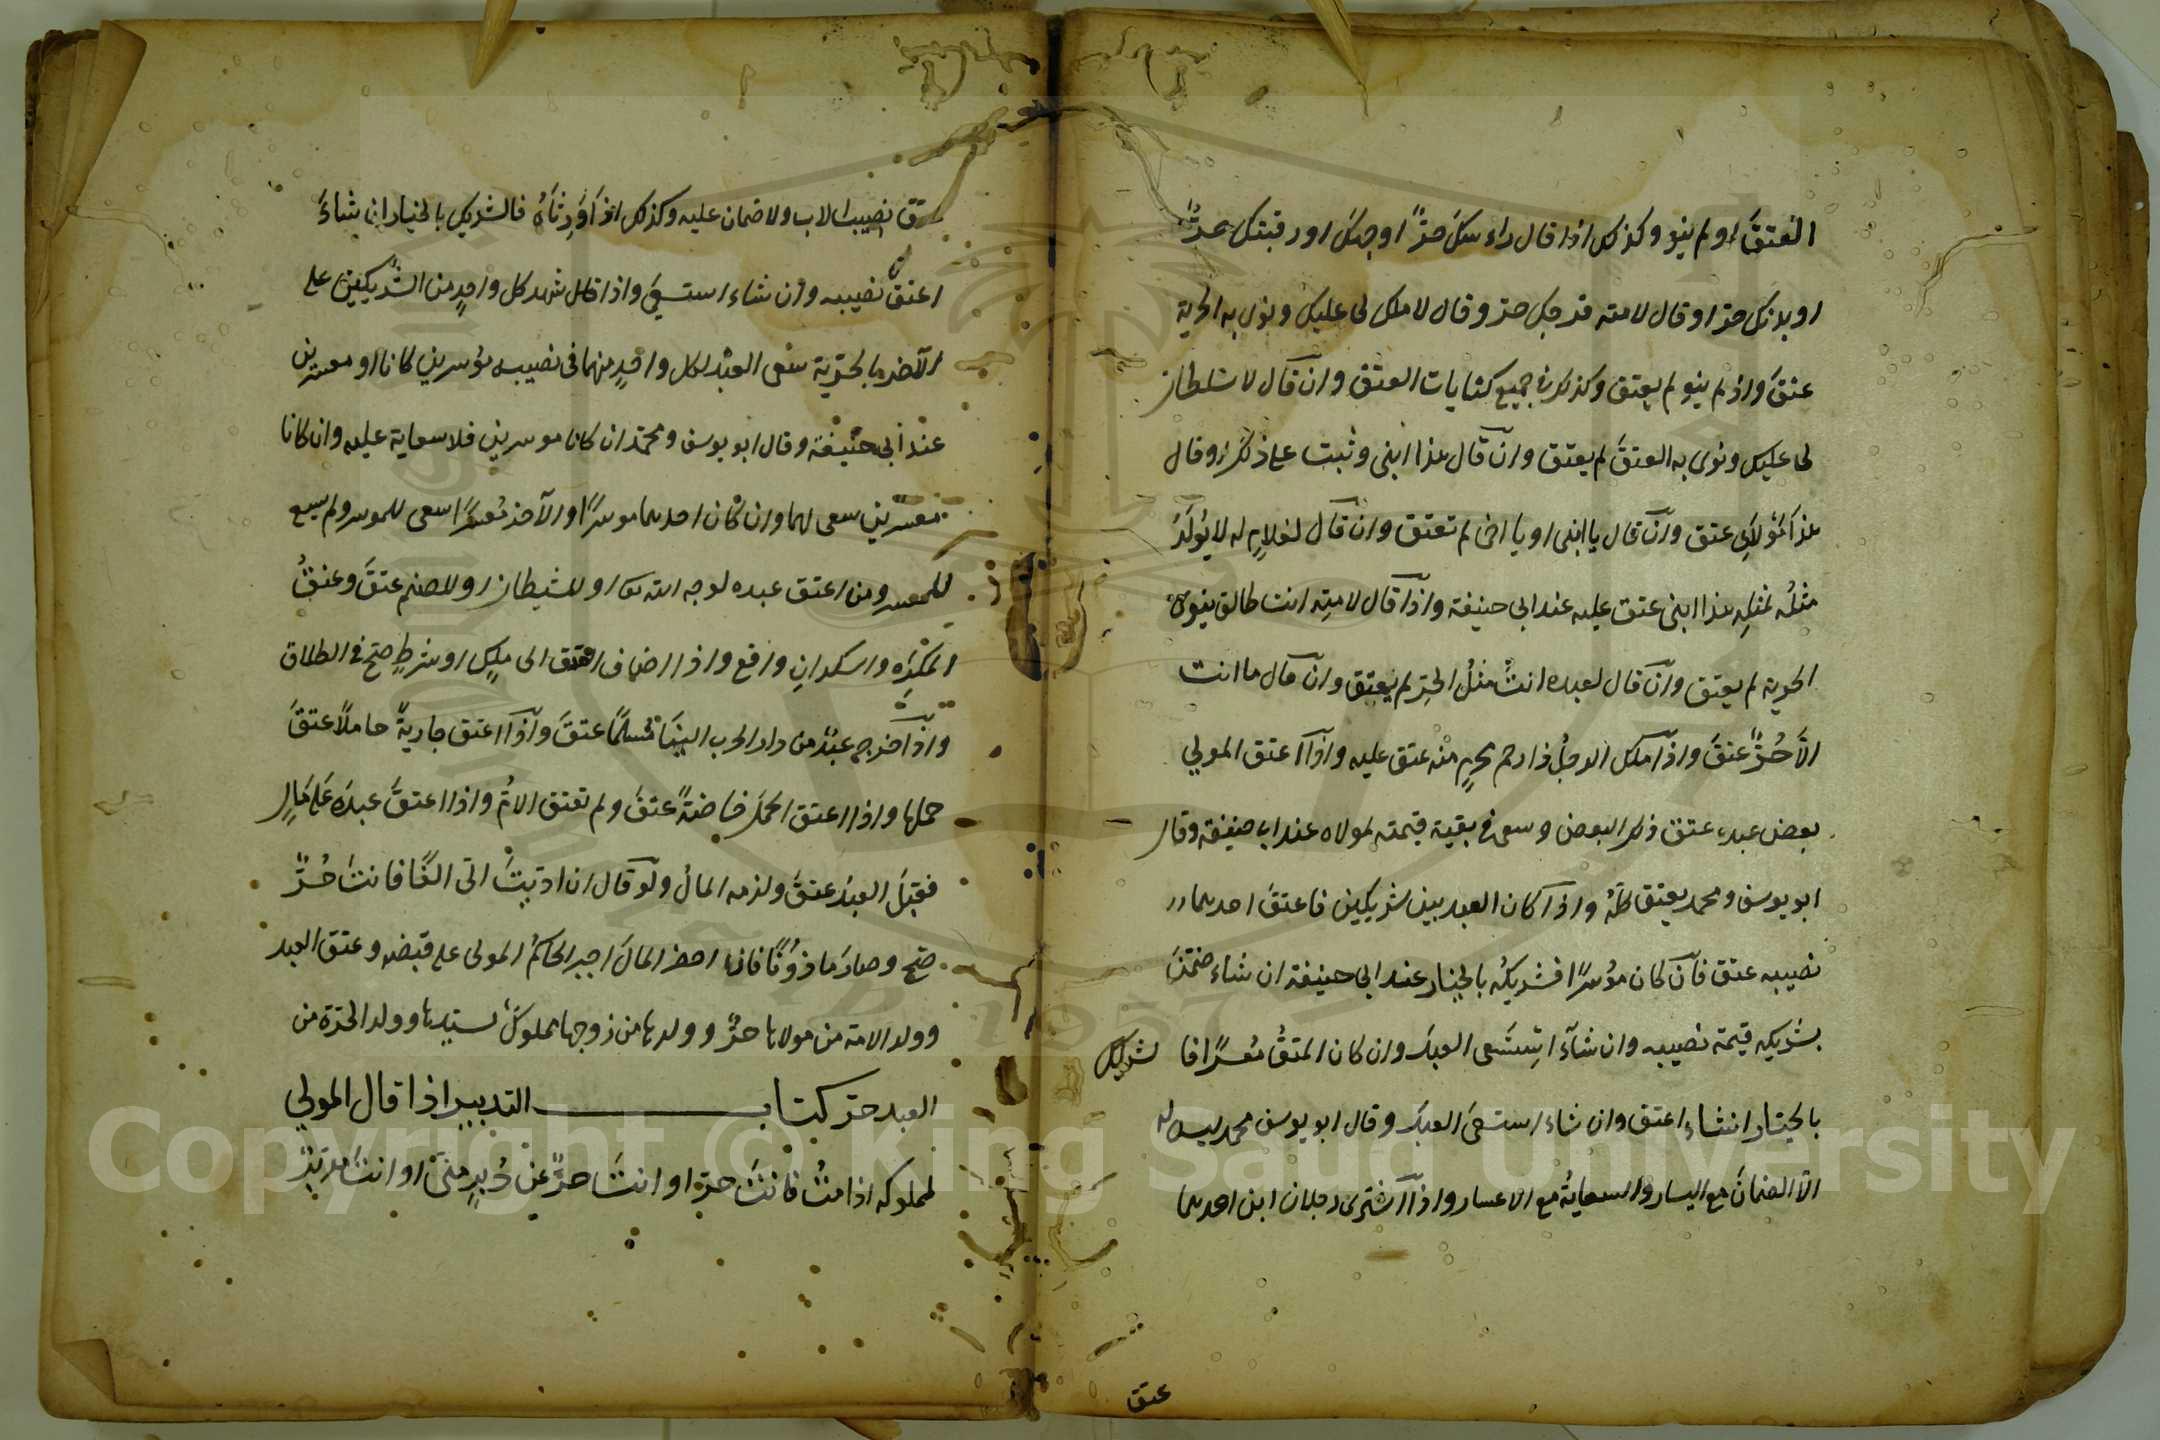 العتقَ او لم ينو وكذلك اذا قال راء سكَ حرٌّ او وجهكَ او رقبتك حرٌّ
او بدنك حرّ او قال لامته فرجك حرّ وقال لا ملك لى عليك ونوى به الحرية
عتقَ واذ لم ينو لم يعتق وكذلك فى جميع كنايات العتق وان قال لا سلطان
لى عليك ونوى به العتقَ لم يعتق وان قال هذا ابنى وثبت على ذلك او قال
هذا مَوْلاىَ عتق وان قال يا ابنى او يا اخى لم تعتق وان قال لغلامٍ له لا يُولَدُ
مثلُه لمثلِه هذا ابنى عتق عليه عند ابى حنيفة واذا قال لامتِه انت طالق ينوى
الحرية لم يعتق وان قال لعبده انتَ مثلُ الحرِّ لم يعتق وان قال ما انت
الّا حُرٌّ عتقَ واذا ملك الرجلُ ذا رحم محرمٍ منه عتق عليه واذا اعتق المولي
بعض عبده عتق ذلك البعض وسعى فى بقية قيمته لمولاه عند ابى حنيفة وقال
ابو يوسف ومحمد يعتق كلّهُ واذا كان العبد بين شريكين فاعتقَ احدهما
نصيبه عتق فان كان موسرًا فشريكُه بالخيار عند ابى حنيفة ان شاء ضمّنَ
شريكه قيمة نصيبه وان شآءَ استسعَى العبدَ وان كان المعتقُ معسرًا فا لشريك
بالخيار انشاء اعتق وان شاء استسعىَ العبدَ وقال ابو يوسف محمد ليس له
الّا الضمانَ مع اليسار والسعايةُ مع الاعسار واذا اشترى رجلان ابن احدهما
عتق
عتق نصيب الاب ولا ضمان عليه وكذلك اذا وَرِثاهُ فالشريك بالخيار ان شاءَ
اعتقَ نصيبه وان شاء استسعىَ واذا شهد كل واحدٍ من الشريكين على
الآخر بالحرّية سعى العبْد لكل واحدٍ منهما فى نصيبه موسرين كانا او معسرين
عند أبى حنيفة وقال ابو يوسف ومحمّد ان كانا موسرين فلا سعاية عليه وان كانا
معسرين سعى لهما وان كان احدهما موسرًا والآخر مُعسرًا سعى للموسر ولم يسع
للمعسر ومن اعتق عبده لوجه الله تعا او للشيطان او للصنم عتقَ وعتقُ
المكْرَهِ والسكرانِ واقع واذا اضاف العتق الى ملكٍ او شرطٍ صحّ فى الطلاق
واذا خرج عبدٌ من دار الحرب الينَا مُسلمًا عتقَ واذا اعتق جاريةً حاملًا عتقَ
حملها واذا اعتق الحملَ خاصّةً عتقَ ولم تعتق الامُّ واذا اعتقَ عبدَه عَلى مَالٍ
فقبلَ العبدُ عتقَ ولزمه المالُ ولو قال ان ادّيتَ الىّ الفًا فانتَ حُرٌّ
صحّ وصارَ ماذوُنًا فاذا احضر المالَ اجبر الحاكمُ المولى على قبضه وعتق العبد
وولد الامة من مولاها حرٌّ وولدها من زوجها مملوكٌ لسيّدها وولد الحرّة من
العبد حرّ كتاب التدبير اذا قال المولي
لمملوكه اذا متُّ فانتَ حرّ او انتَ حرٌّ عن دُبرٍ منّى او انتَ مدبّرٌ